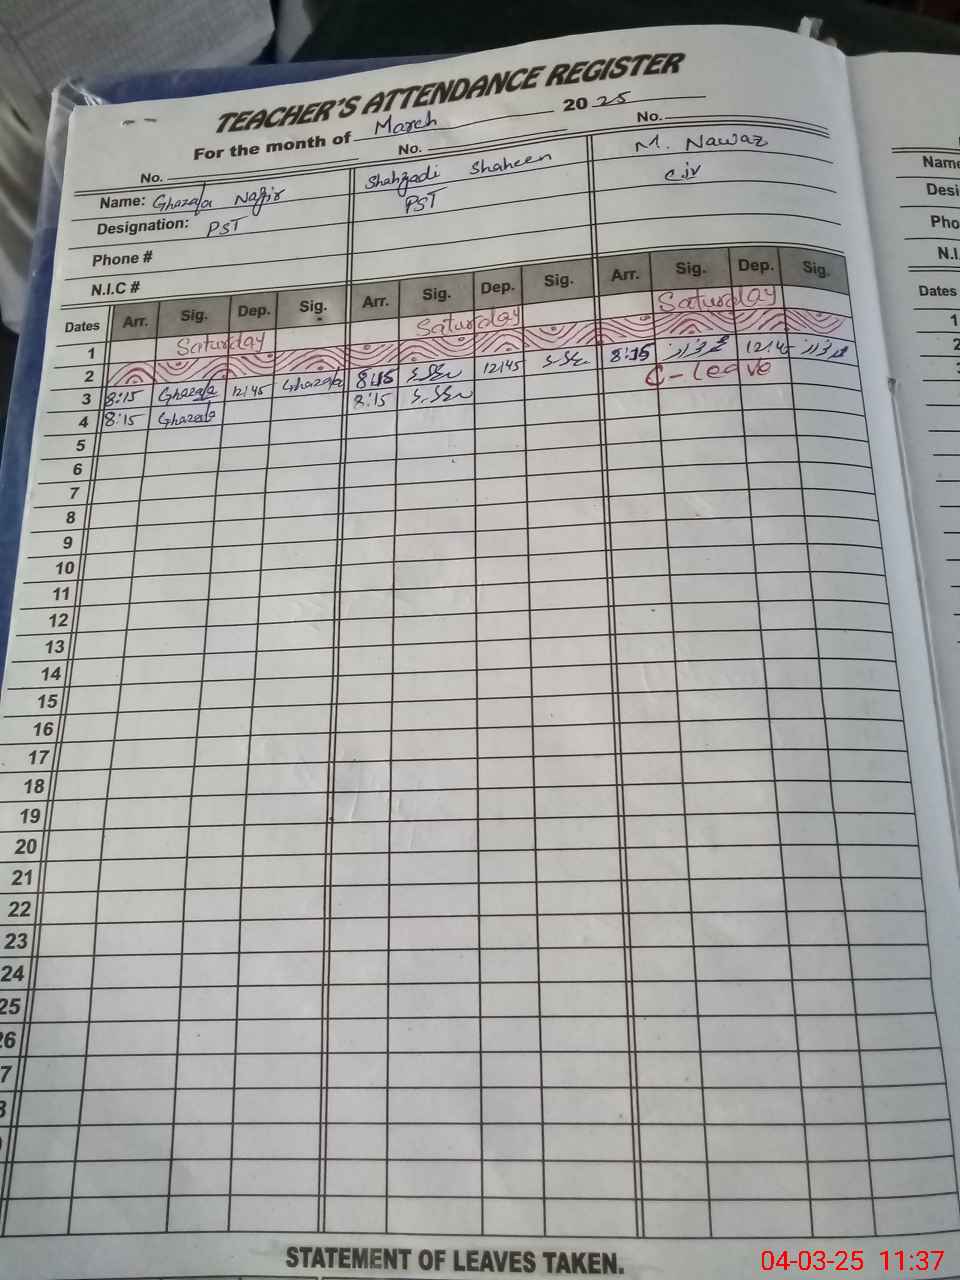 TEACHER'S ATTENDANCE REGISTER
For the month of March 2025
No. No. No.
Name: Ghazala Nazir Shahzadi Shaheen M. Nawaz
Designation: PST PST C.iv
Phone #
N.I.C #
Dates Arr. Sig. Dep. Sig. Arr. Sig. Dep. Sig. Arr. Sig. Dep. Sig.
1 Saturday Saturday Saturday
2
3 8:15 Ghazala 12:45 Ghazala 8:15 12:45 8:15 محمد نواز 12:45 محمد نواز
4 8:15 Ghazala 8:15 C-leave
5
6
7
8
9
10
11
12
13
14
15
16
17
18
19
20
21
22
23
24
25
26
7
STATEMENT OF LEAVES TAKEN.
Name
Desi
Pho
N.I.
Dates
1
2
04-03-25 11:37